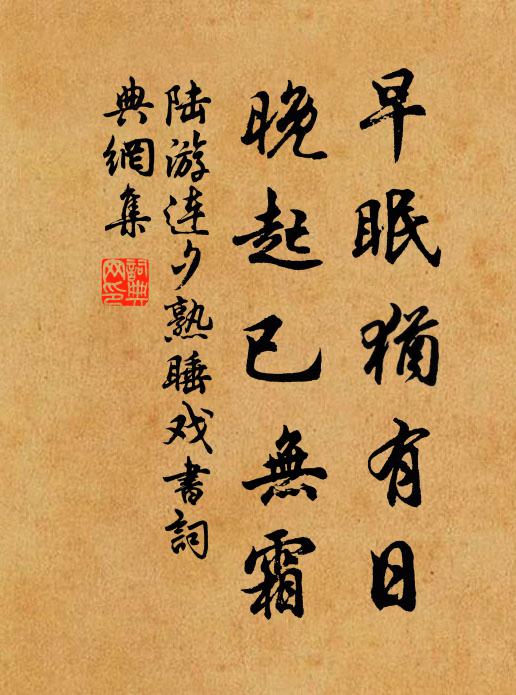 早眠猶有日
晚起已無霜
陆游连夕熟睡戏書詞
典網集
詞典
网印